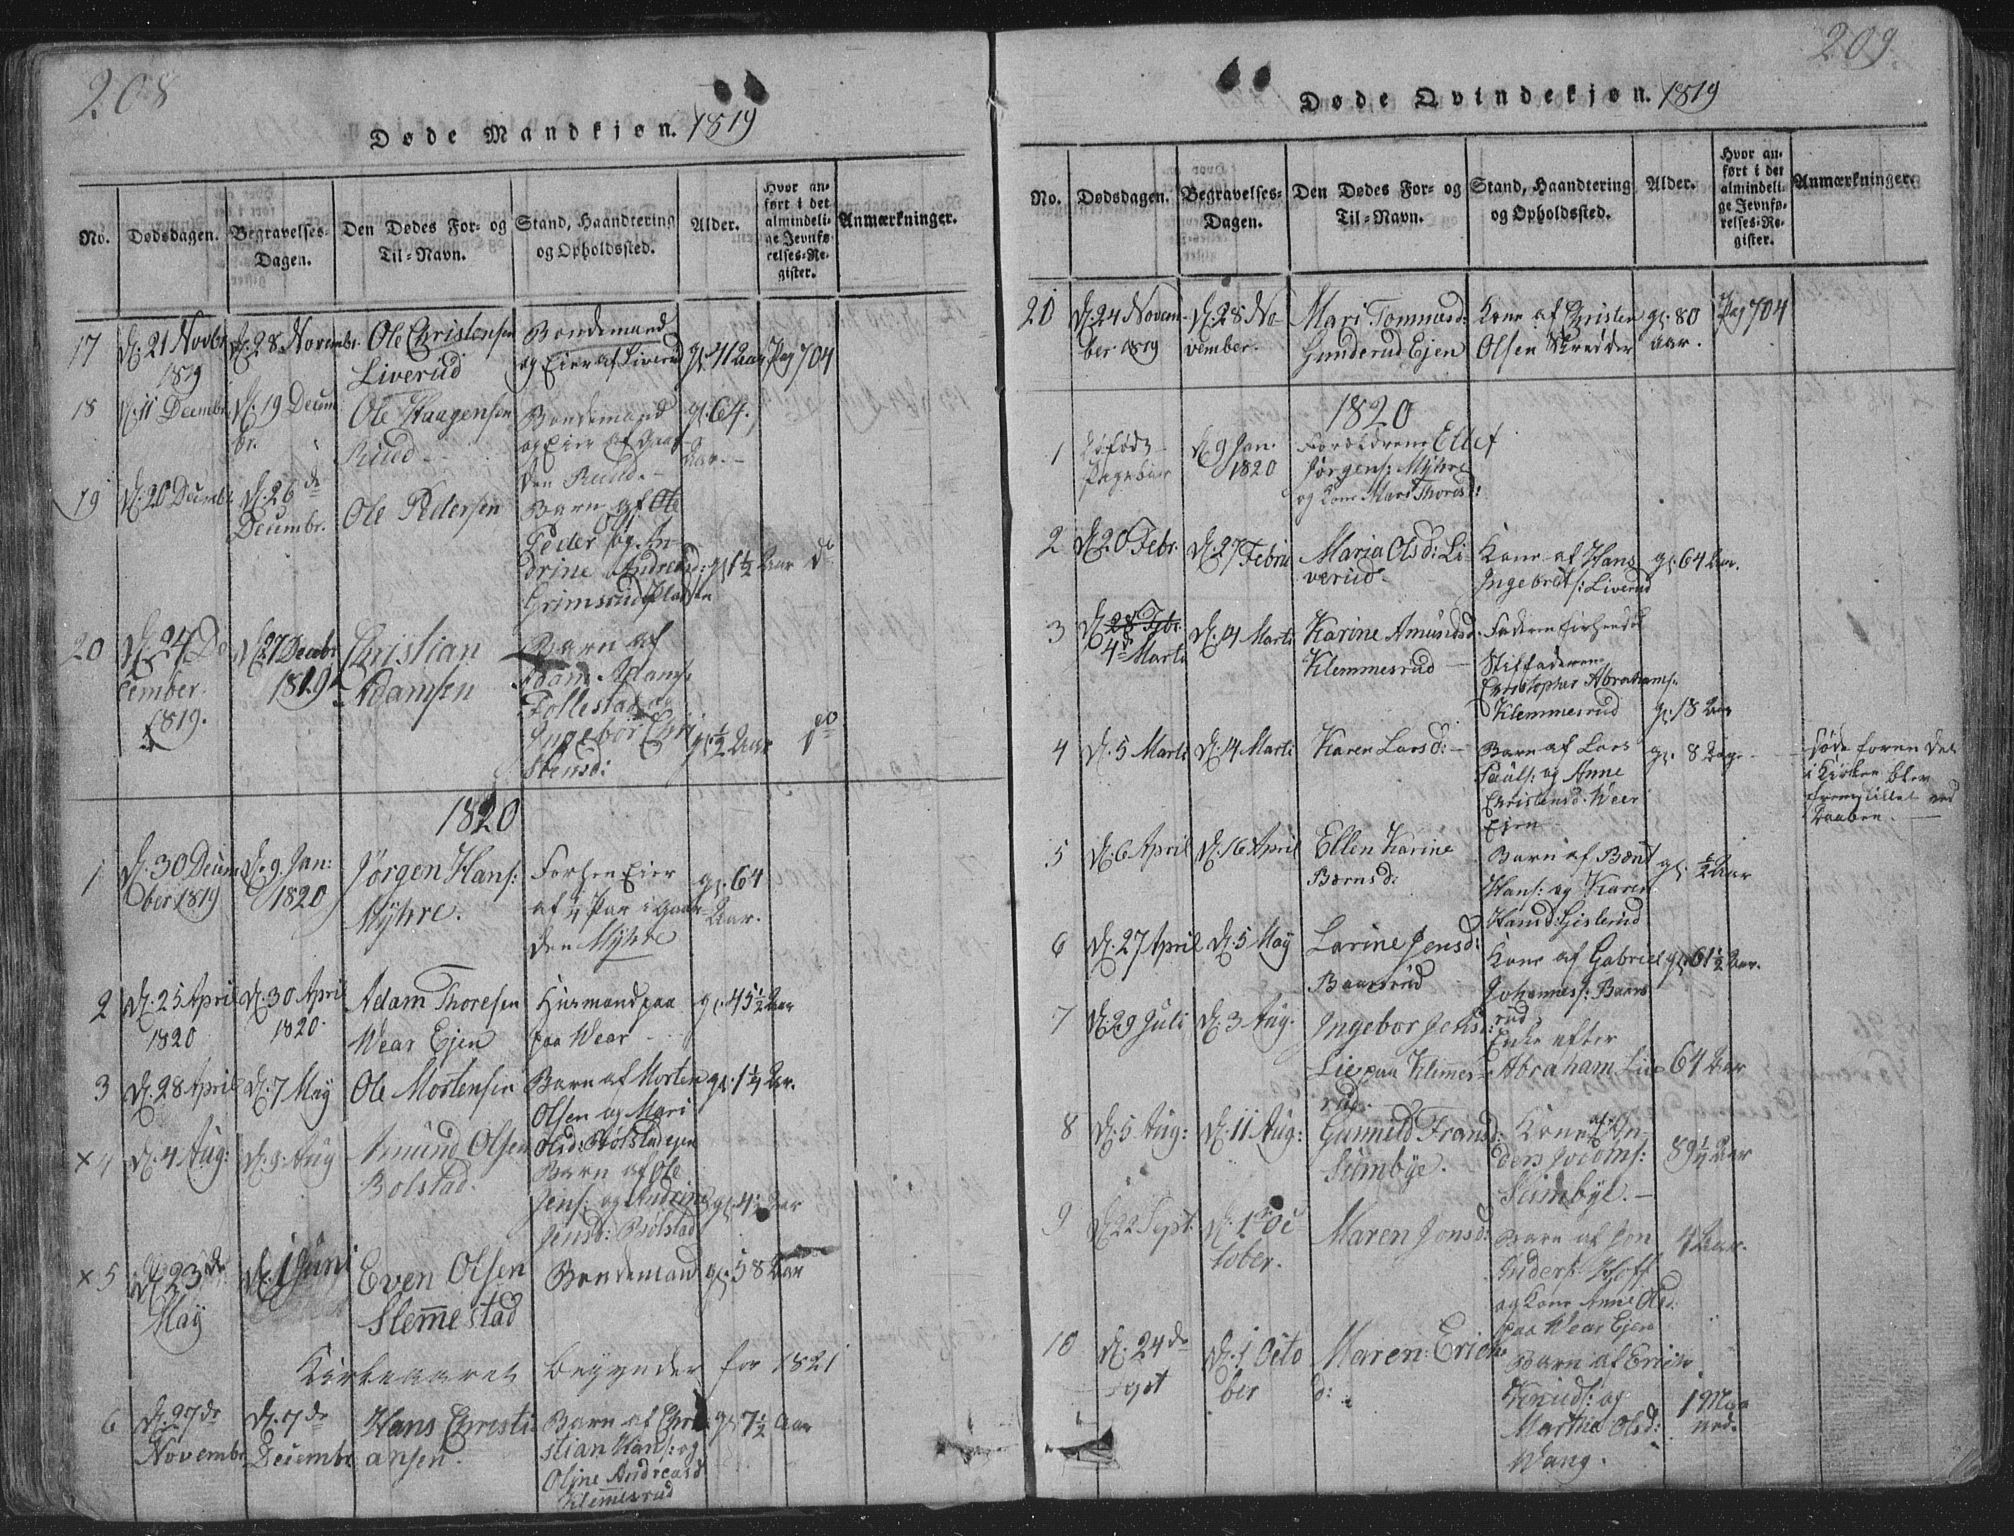 208
Døde Mandkjøn. 1819
No.
Dødsdagen.
Begravelses-
Dagen.
Den Dødes For- og
Til-Navn.
Stand, Haandtering
og Opholdssted.
Alder.
Hvor an-
ført i det
almindeli-
ge Jevnfø-
relses-Re-
gister.
Anmærkninger.
17
d. 21 Novbr
1819
d. 28 Novembr.
Ole Christensen
Liverud
Bondemand
og Eier af Liverud
gl. 41 Aar
Pag 704
18
d. 11 Decembr.
d. 19 Decem
br.
Ole Haagensen
Ruud
Bondemand
og Eier af Gaar-
den Ruud.
gl. 64.
Aar.
19
d. 20 Decembr
d. 26 de
Decembr.
Ole Pedersen
Barn af Ole
Peder og An-
drine Andreasd:
Grimsrud Pladsen
gl. 1½ Aar
do
20
d. 24 De
cember.
1819.
d. 27 Decbr
1819
Christian
Adamsen
Barn af
Adam Adams:
Follestad og
Ingebor Chri
stensd:
gl. ½ Aar
do
1820
1
d. 30 Decem
ber 1819
d. 9. Jan:
1820
Jørgen Hans:
Myhre.
Forhen Eier
af ¼ Par i Gaar-
den Myhre
gl. 64
Aar.
2
d. 25 April
1820
d. 30 April
1820.
Adam Thoresen
Wear Ejen
Huusmand paa
paa Wear
gl. 45½ Aar
3
d. 28 April
d. 7 May
Ole Mortensen
Barn af Morten
Olsen og Mari
Olsd: Bølstadejen
gl. 1¼ Ar.
x 4
d. 4 Aug:
d. 9. Aug
Amund Olsen
Bolstad.
Barn af Ole
Jens: og Andrine
Jensd: Bølstad
gl. 4½ Aar
x 5
d. 23 de
May
d. 1 Juni
Even Olsen
Slemmestad
Bondemand
gl. 58 Aar
Kirkeaaret begynder for 1821
6
d. 27 de
Novembr
d. 7 de
Decembr
Hans Christi
ansen.
Barn af Chri
stian Hans: og
Oline Andreasd
Klemmesrud
gl. 7½ Aar
209.
Døde Qvindekjøn. 1819
No.
Dødsdagen.
Begravelses-
Dagen.
Den Dødes For- og
Til-Navn.
Stand, Haandtering
og Opholdssted.
Alder.
Hvor an-
ført i det
almindeli-
ge Jevnfø-
relses-Re-
gister.
Anmærkninger.
20
d. 24 Novem-
ber 1819
d. 28 No-
vember.
Mari Tommasd:
Gunderud Ejen
Kone af Christen
Olsen Skrædder
gl. 80
Aar.
Pag 704
1820
1
d. 9 Jan.
1820
Forældrene Ellef
Jørgens: Myhre
og Kone Mari Thoresd:
2
d. 20 Febr.
d. 27 Febru
Maria Olsd: Li
verud.
Kone af Hans
Ingebrets: Liverud
gl. 64 Aar.
3
d. 28 Febr.
4 de Marti
d. 14 Marti
Karine Amundsd.
Klemmesrud
Stiffaderen
Christopher Abrahams:
Klemmesrud
gl. 18 Aar
4
d. 5 Marti
d. 14 Marti
Karen Larsd:
Barn af Lars
Pauls: og Anne
Christensd. Wear
Ejen
gl. 8 Dage
døde foren det
i Kirken blev
fremstillet ved
Daaben.
5
d. 6 April
d. 16 April
Ellen Karine
Bærnsd:
Barn af Bærnt
Hans: og Karen
Hansd: Gislerud
gl. ½ Aar
6
d. 27 April
d. 5 May
Larine Jensd:
Baarsrud
Kone af Gabriel
Johannes: Baars
rud
gl. 61½ Aar.
7
d. 29 Juli
d. 3 Aug.
Ingebor Jensd:
Lie paa Klemes-
rud.
Enke efter
Abraham Lie
64 Aar
8
d. 5 Aug:
d. 11 Aug:
Gunnild Fransd:
Sumbye.
Kone af An-
ders Jocoms:
Sumbye.
89¼ Aar
9
d. 22 Sept.
d. 1 Oc
tober.
Maren Jonsd:
Barn af Jon
Anders: Hoff
og Kone Anne Olsd.
paa Wear Ejen
4 Aar.
10
d. 24 de
Sept
d. 1 Octo
ber
Maren Erichs
d:
Barn af Erich
Knuds: og
Martha Olsd:
Wang.
1 Maa
ned.